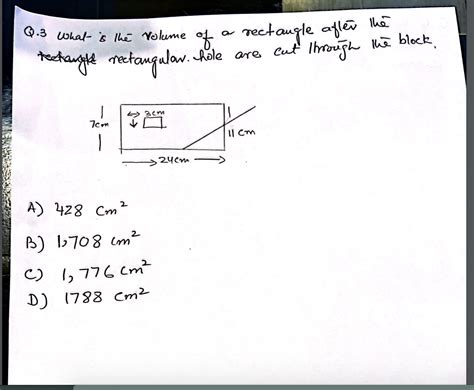 Q.3 What is the volume of a rectangle after the
rectangular hole are cut through the block.
3cm
7cm
11 cm
24cm
A) 428 cm²
B) 1,708 cm²
C) 1,776 cm²
D) 1788 cm²